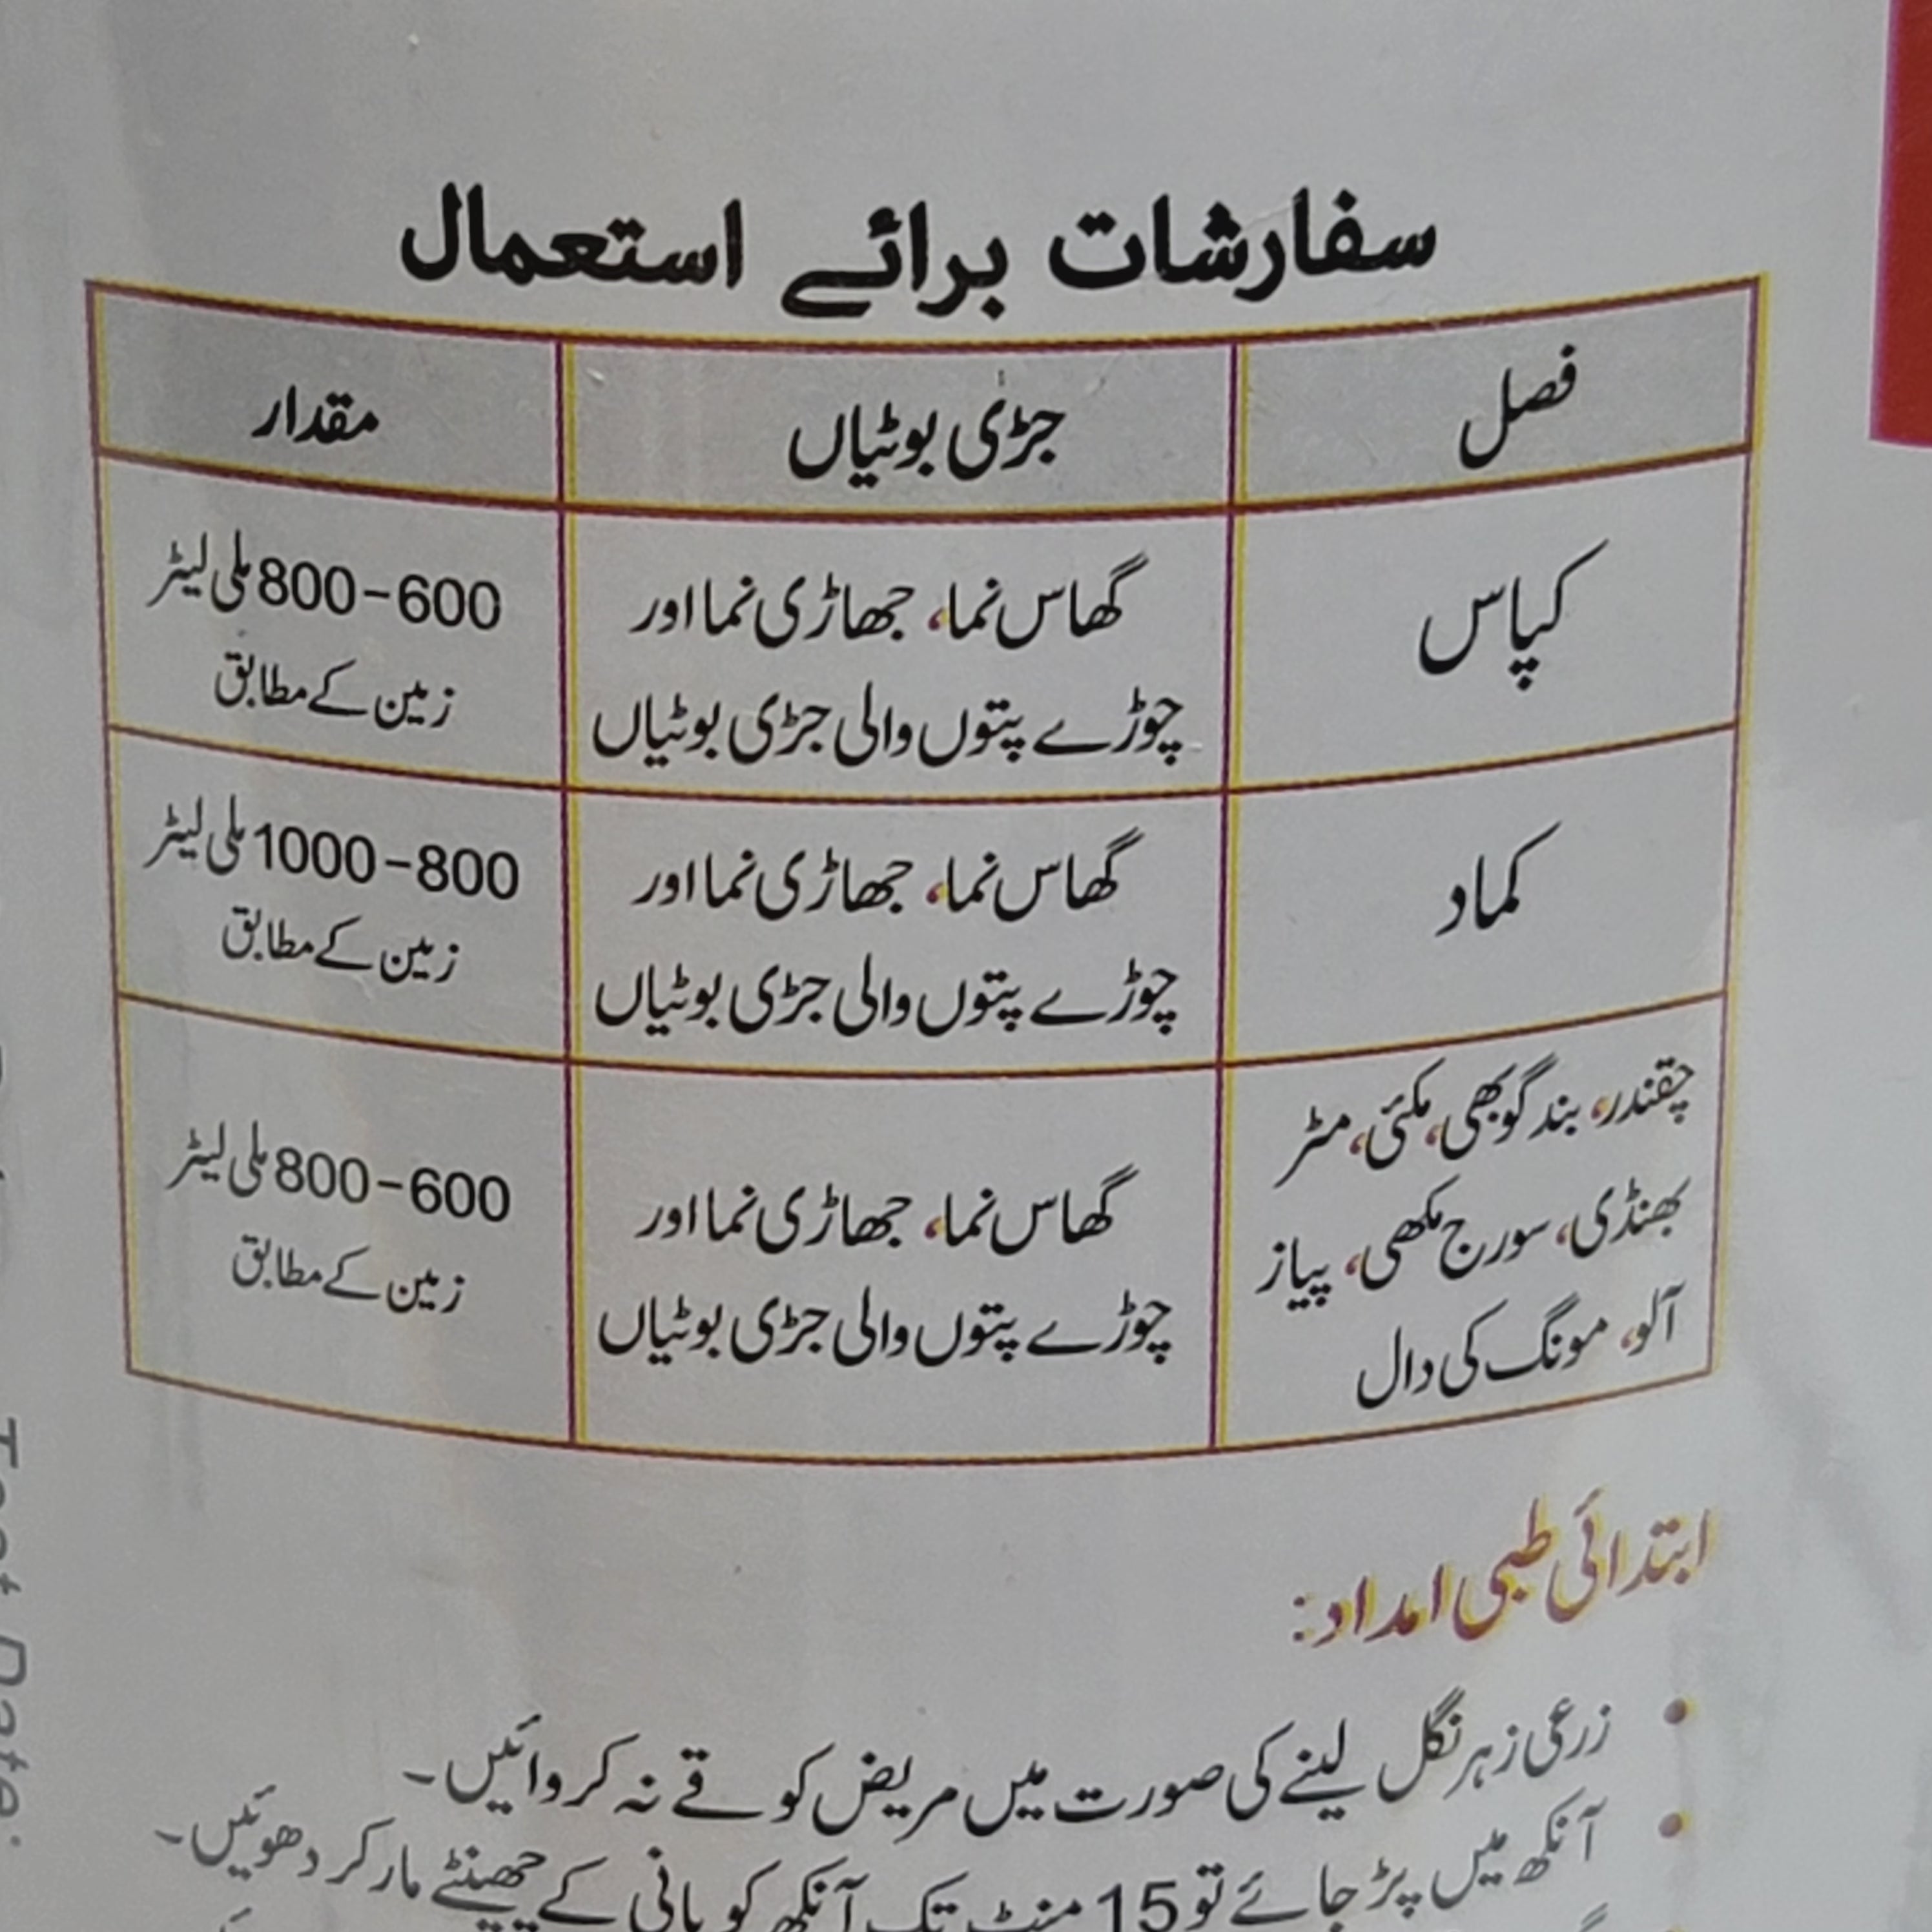 سفارشات برائے استعمال
فصل جڑی بوٹیاں مقدار
کپاس
گھاس نما، جھاڑی نما اور
چوڑے پتوں والی جڑی بوٹیاں
600-800 ملی لیٹر
زمین کے مطابق
کماد
گھاس نما، جھاڑی نما اور
چوڑے پتوں والی جڑی بوٹیاں
800-1000 ملی لیٹر
زمین کے مطابق
چقندر، بند گوبھی، مکئی، مٹر
بھنڈی، سورج مکھی، پیاز
آلو، مونگ کی دال
گھاس نما، جھاڑی نما اور
چوڑے پتوں والی جڑی بوٹیاں
600-800 ملی لیٹر
زمین کے مطابق
ابتدائی طبی امداد:
• زرعی زہر نگل لینے کی صورت میں مریض کو قے نہ کروائیں۔
• آنکھ میں پڑ جائے تو 15 منٹ تک آنکھ کو پانی کے چھینٹے مار کر دھوئیں۔
Date: